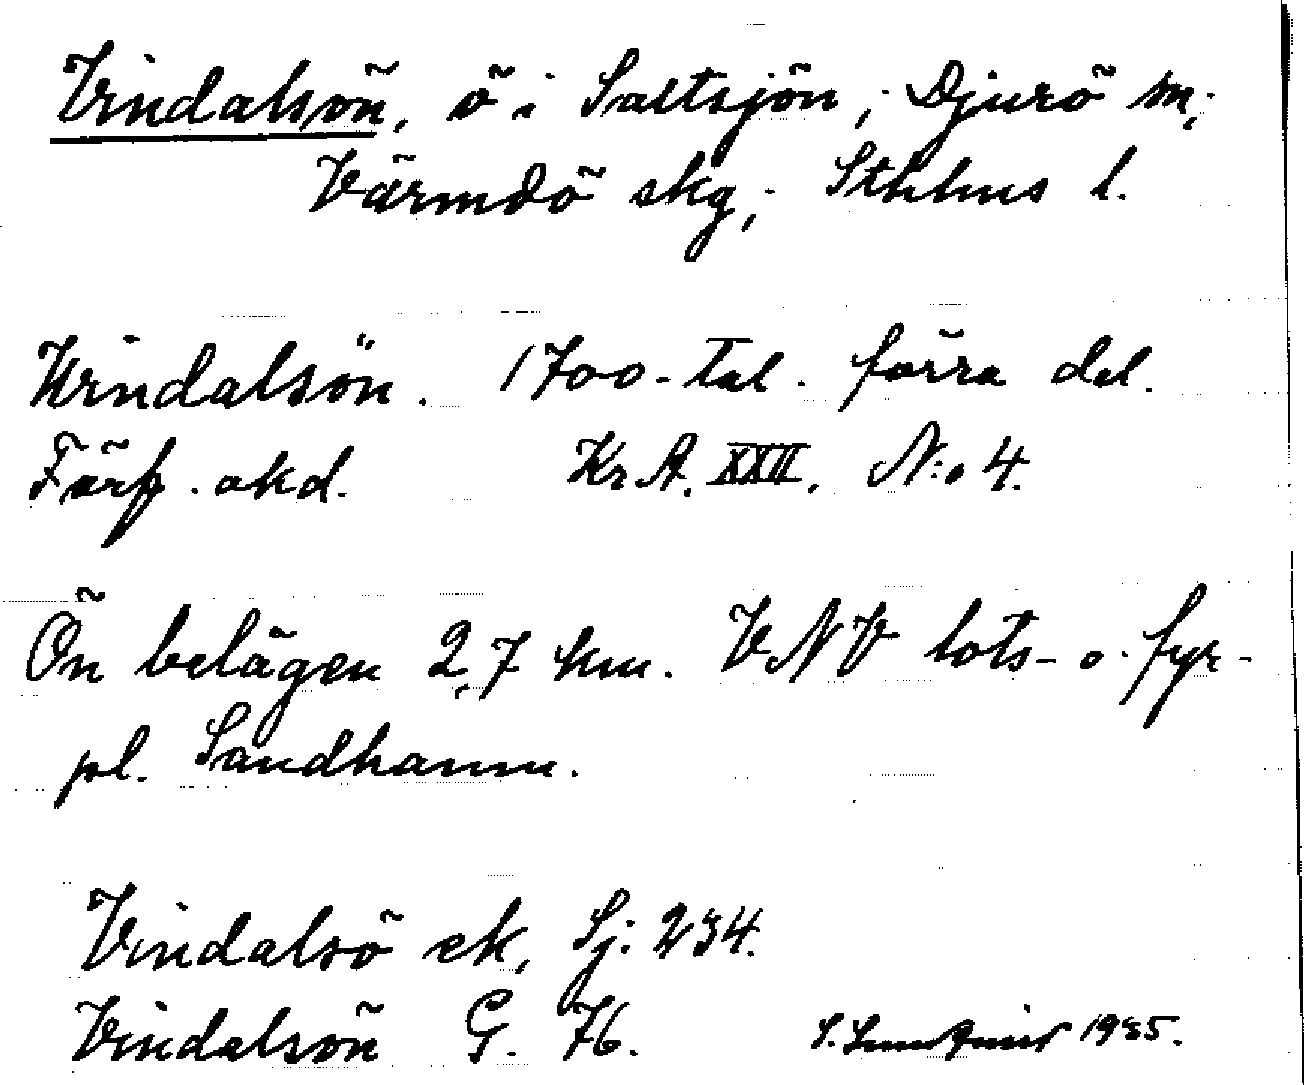 Vindalsön, ö i Saltsjön, Djurö sn,
Värmdö skg, Sthlms l.
Windalsön. 1700-tal. förra del.
Förf. okd. Kr.A. XXII. N:o 4.
Ön belägen 2,7 km. VNV lots- o. fyr-
pl. Sandhamn.
Vindalsö ek, Sj: 234.
Vindalsön G. 76. S. 1935.